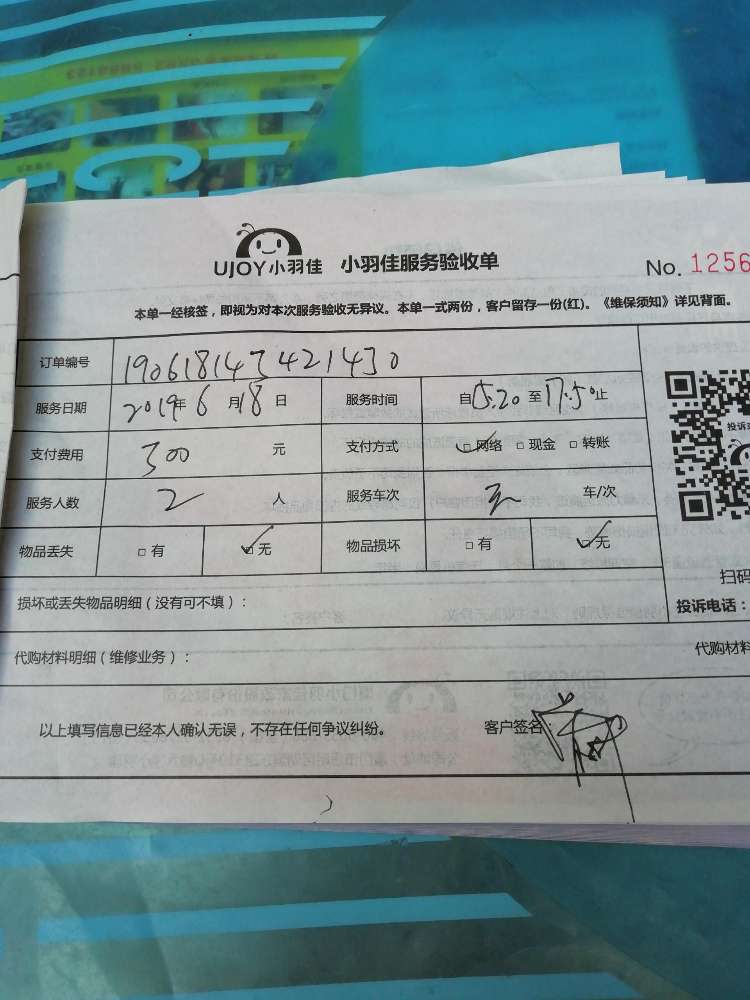 UJOY小羽佳 小羽佳服务验收单 No. 1256
本单一经核签，即视为对本次服务验收无异议。本单一式两份，客户留存一份(红)。《维保须知》详见背面。
订单编号 190618143421430
服务日期 2019年 6 月 18 日 服务时间 自 15.20 至 17.50 止
支付费用 300 元 支付方式 ☑网络 □现金 □转账
服务人数 2 人 服务车次 车/次
物品丢失 □有 ☑无 物品损坏 □有 ☑无
扫码
损坏或丢失物品明细（没有可不填）： 投诉电话：
代购材料明细（维修业务）： 代购材料
以上填写信息已经本人确认无误，不存在任何争议纠纷。 客户签名：